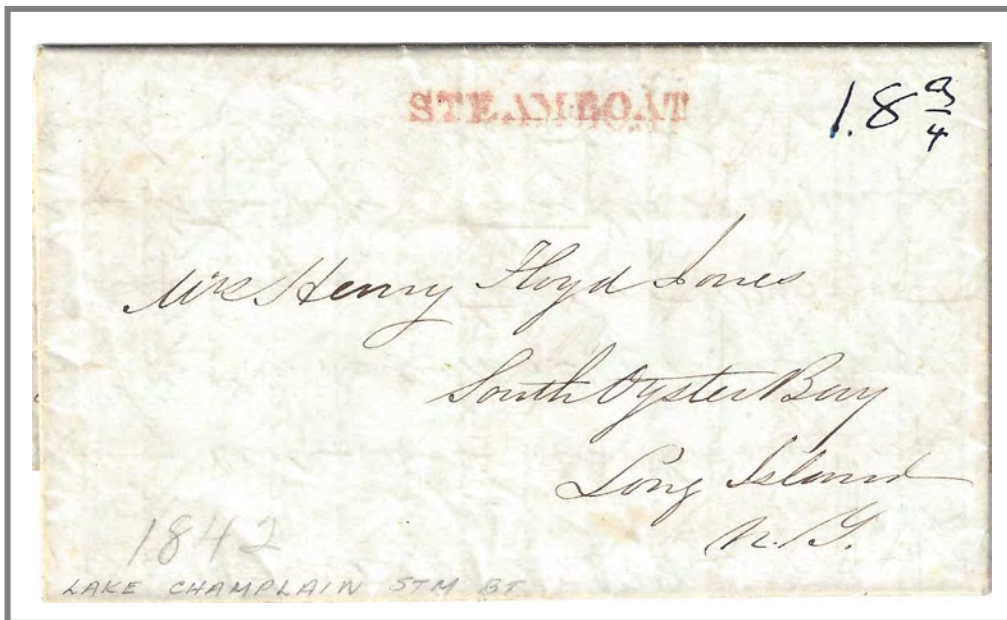 STEAMBOAT
1.8 3/4
Mrs Henry Floyd Jones
South Oyster Bay
Long Island
N.Y.
1842
LAKE CHAMPLAIN STM BT